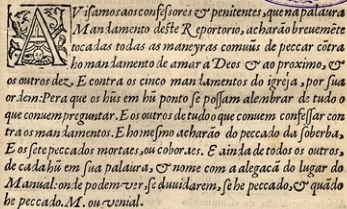 AVisamos aos confessores & penitentes, que na palaura
Mandamento deste Reportorio, acharão breuemẽte
tocadas todas as maneyras comuũs de peccar cõtra
ho mandamento de amar a Deos & ao proximo, &
os outros dez. E contra os cinco mandamentos da igreja, por sua
ordem: Pera que os hũs em hũ ponto se possam alembrar de tudo o
que conuem preguntar. E os outros de tudo que conuem confessar con
tra os mandamentos. E ho mesmo acharão do peccado da soberba,
E os sete peccados mortaes, ou caboraes. E ainda de todos os outros,
de cada hũ em sua palaura, & nome com a alegacã do lugar do
Manual: onde podem ver, se duuidarem, se he peccado, & quãdo
he peccado. M. ou venial.